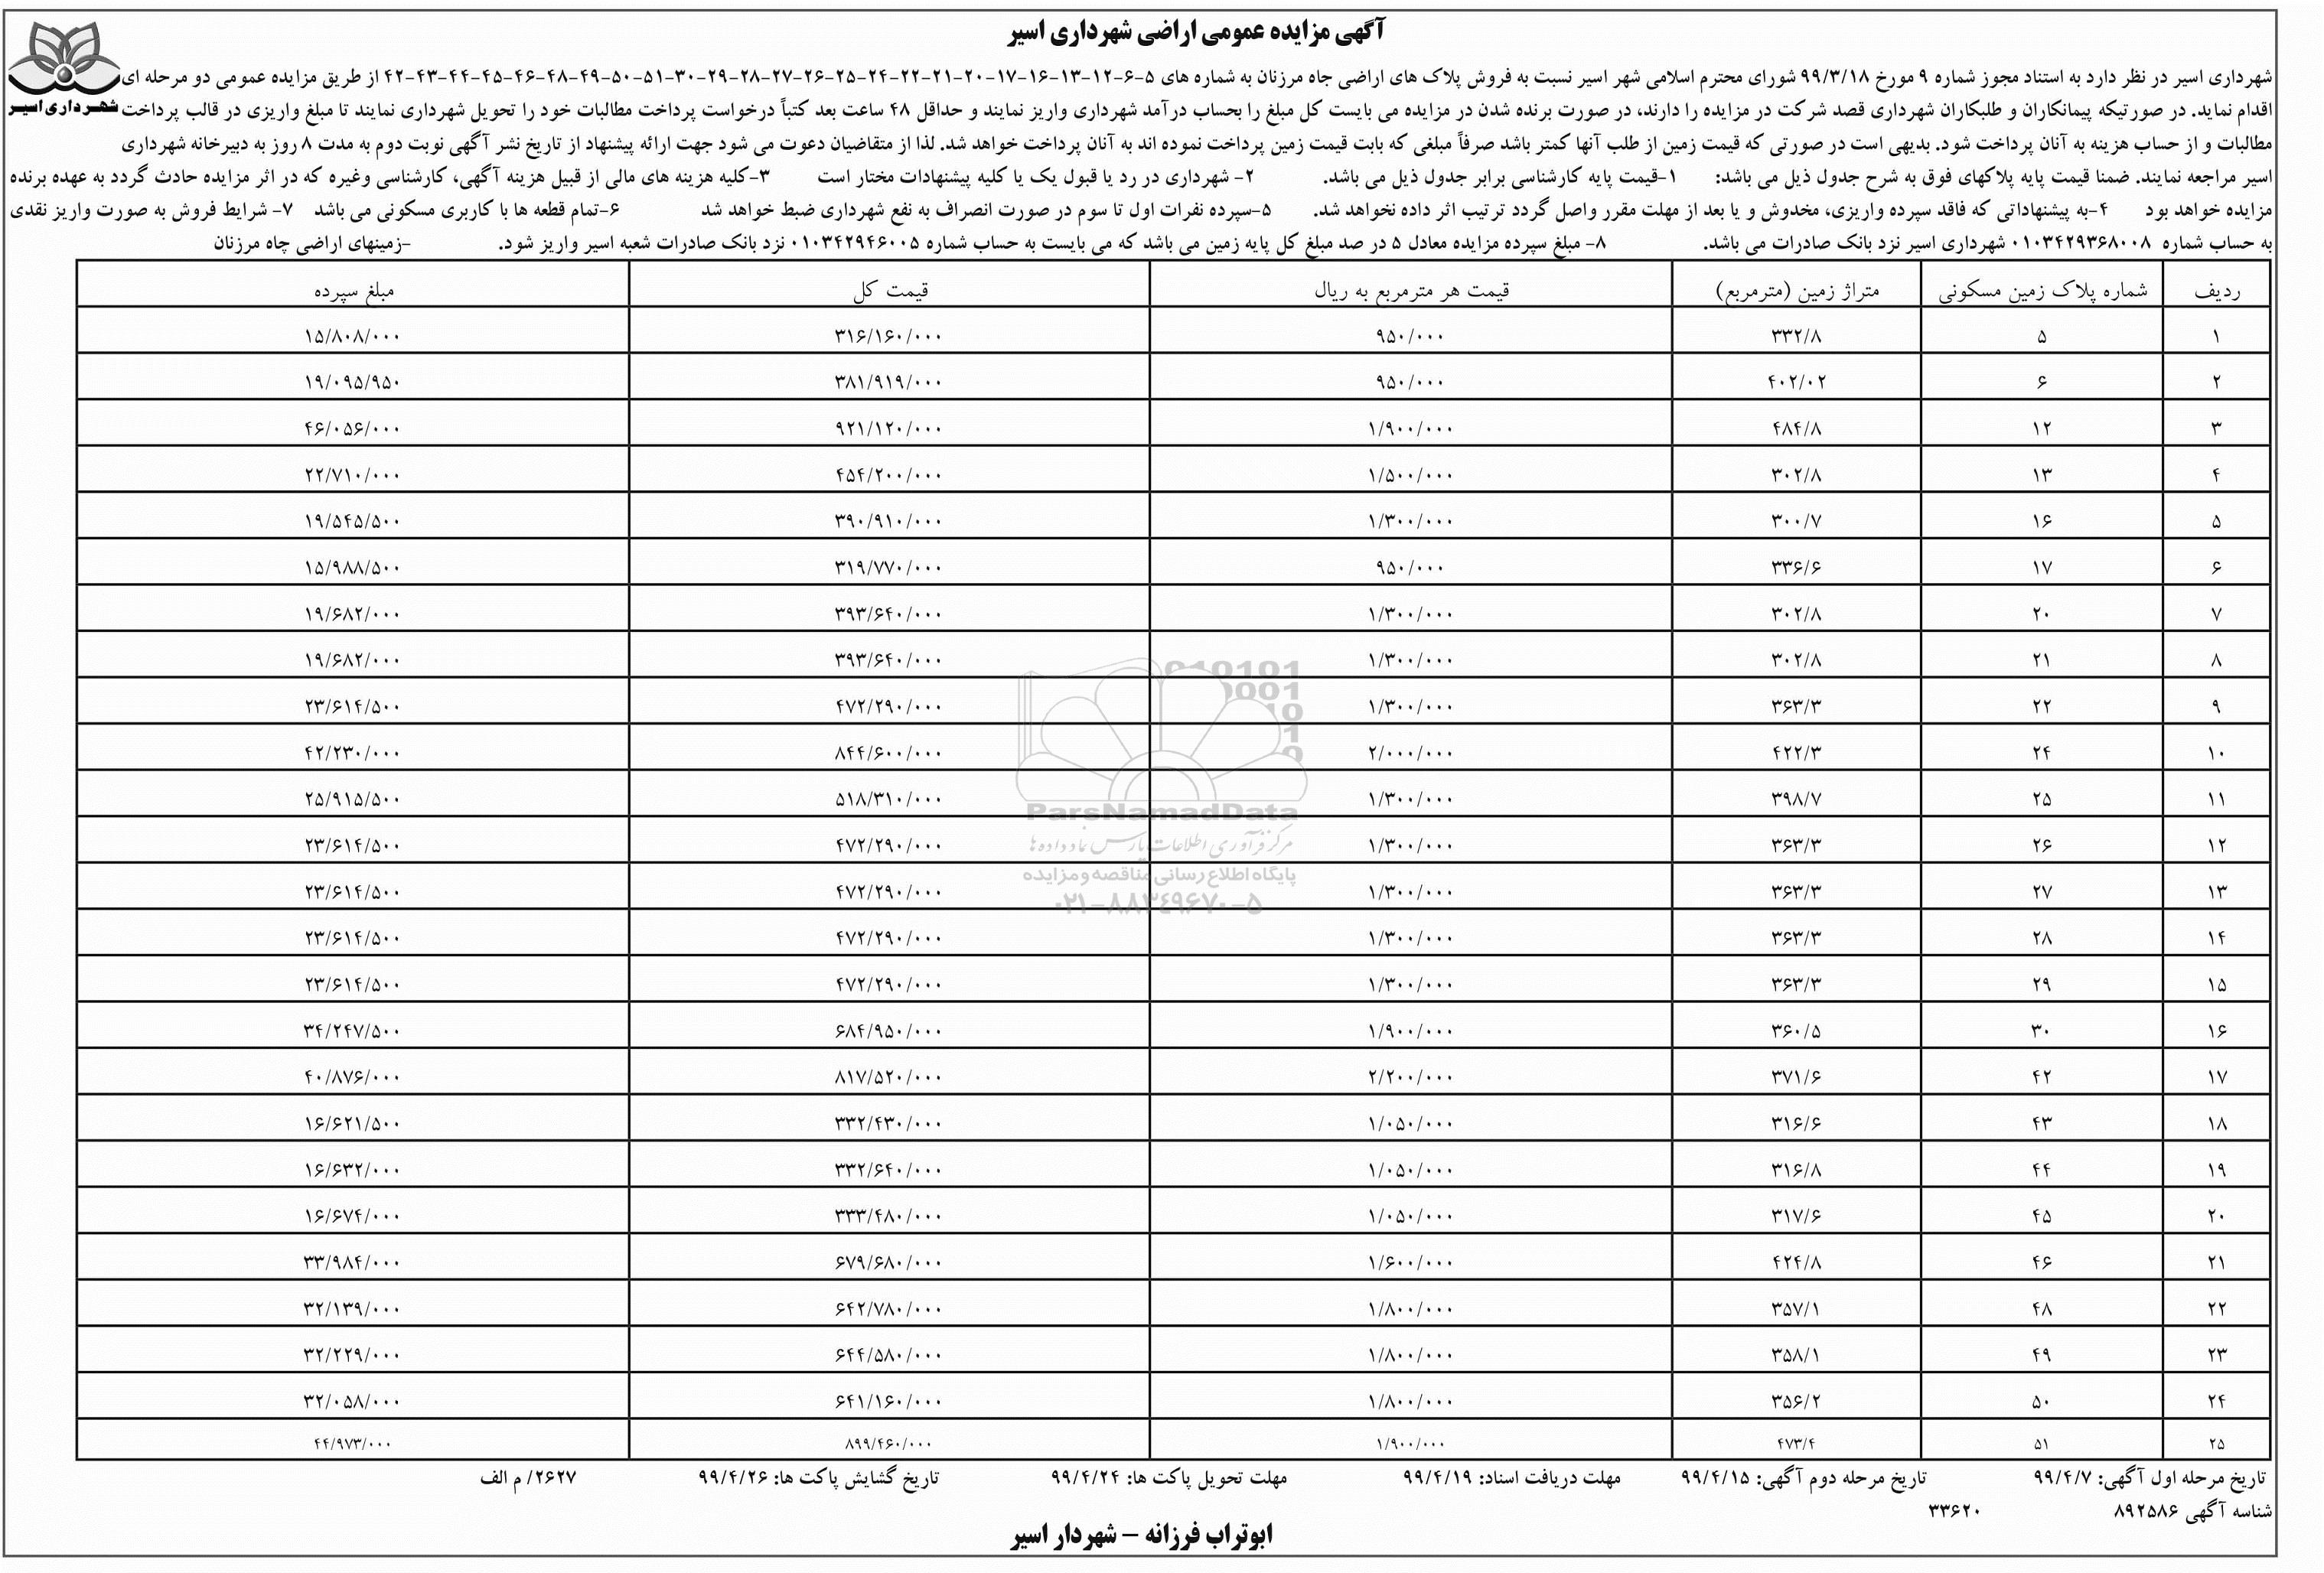 آگهی مزایده عمومی اراضی شهرداری اسیر
شهرداری اسیر
شهرداری اسیر در نظر دارد به استناد مجوز شماره ۹ مورخ ۹۹/۳/۱۸ شورای محترم اسلامی شهر اسیر نسبت به فروش پلاک های اراضی جاه مرزنان به شماره های ۵-۶-۱۲-۱۳-۱۶-۱۷-۲۰-۲۱-۲۲-۲۴-۲۵-۲۶-۲۷-۲۸-۲۹-۳۰-۵۱-۵۰-۴۹-۴۸-۴۶-۴۵-۴۴-۴۳-۴۲ از طریق مزایده عمومی دو مرحله ای
اقدام نماید. در صورتیکه پیمانکاران و طلبکاران شهرداری قصد شرکت در مزایده را دارند، در صورت برنده شدن در مزایده می بایست کل مبلغ را بحساب درآمد شهرداری واریز نمایند و حداقل ۴۸ ساعت بعد کتباً درخواست پرداخت مطالبات خود را تحویل شهرداری نمایند تا مبلغ واریزی در قالب پرداخت
مطالبات و از حساب هزینه به آنان پرداخت شود. بدیهی است در صورتی که قیمت زمین از طلب آنها کمتر باشد صرفاً مبلغی که بابت قیمت زمین پرداخت نموده اند به آنان پرداخت خواهد شد. لذا از متقاضیان دعوت می شود جهت ارائه پیشنهاد از تاریخ نشر آگهی نوبت دوم به مدت ۸ روز به دبیرخانه شهرداری
اسیر مراجعه نمایند. ضمنا قیمت پایه پلاکهای فوق به شرح جدول ذیل می باشد: ۱-قیمت پایه کارشناسی برابر جدول ذیل می باشد. ۲- شهرداری در رد یا قبول یک یا کلیه پیشنهادات مختار است ۳-کلیه هزینه های مالی از قبیل هزینه آگهی، کارشناسی وغیره که در اثر مزایده حادث گردد به عهده برنده
مزایده خواهد بود ۴-به پیشنهاداتی که فاقد سپرده واریزی، مخدوش و یا بعد از مهلت مقرر واصل گردد ترتیب اثر داده نخواهد شد. ۵-سپرده نفرات اول تا سوم در صورت انصراف به نفع شهرداری ضبط خواهد شد ۶-تمام قطعه ها با کاربری مسکونی می باشد ۷- شرایط فروش به صورت واریز نقدی
به حساب شماره ۰۱۰۳۴۲۹۳۶۸۰۰۸ شهرداری اسیر نزد بانک صادرات می باشد. ۸- مبلغ سپرده مزایده معادل ۵ در صد مبلغ کل پایه زمین می باشد که می بایست به حساب شماره ۰۱۰۳۴۲۹۴۶۰۰۵ نزد بانک صادرات شعبه اسیر واریز شود. -زمینهای اراضی چاه مرزنان
ردیف شماره پلاک زمین مسکونی متراژ زمین (مترمربع) قیمت هر مترمربع به ریال قیمت کل مبلغ سپرده
۱ ۵ ۳۳۲/۸ ۹۵۰/۰۰۰ ۳۱۶/۱۶۰/۰۰۰ ۱۵/۸۰۸/۰۰۰
۲ ۶ ۴۰۲/۰۲ ۹۵۰/۰۰۰ ۳۸۱/۹۱۹/۰۰۰ ۱۹/۰۹۵/۹۵۰
۳ ۱۲ ۴۸۴/۸ ۱/۹۰۰/۰۰۰ ۹۲۱/۱۲۰/۰۰۰ ۴۶/۰۵۶/۰۰۰
۴ ۱۳ ۳۰۲/۸ ۱/۵۰۰/۰۰۰ ۴۵۴/۲۰۰/۰۰۰ ۲۲/۷۱۰/۰۰۰
۵ ۱۶ ۳۰۰/۷ ۱/۳۰۰/۰۰۰ ۳۹۰/۹۱۰/۰۰۰ ۱۹/۵۴۵/۵۰۰
۶ ۱۷ ۳۳۶/۶ ۹۵۰/۰۰۰ ۳۱۹/۷۷۰/۰۰۰ ۱۵/۹۸۸/۵۰۰
۷ ۲۰ ۳۰۲/۸ ۱/۳۰۰/۰۰۰ ۳۹۳/۶۴۰/۰۰۰ ۱۹/۶۸۲/۰۰۰
۸ ۲۱ ۳۰۲/۸ ۱/۳۰۰/۰۰۰ ۳۹۳/۶۴۰/۰۰۰ ۱۹/۶۸۲/۰۰۰
۹ ۲۲ ۳۶۳/۳ ۱/۳۰۰/۰۰۰ ۴۷۲/۲۹۰/۰۰۰ ۲۳/۶۱۴/۵۰۰
۱۰ ۲۴ ۴۲۲/۳ ۲/۰۰۰/۰۰۰ ۸۴۴/۶۰۰/۰۰۰ ۴۲/۲۳۰/۰۰۰
۱۱ ۲۵ ۳۹۸/۷ ۱/۳۰۰/۰۰۰ ۵۱۸/۳۱۰/۰۰۰ ۲۵/۹۱۵/۵۰۰
۱۲ ۲۶ ۳۶۳/۳ ۱/۳۰۰/۰۰۰ ۴۷۲/۲۹۰/۰۰۰ ۲۳/۶۱۴/۵۰۰
۱۳ ۲۷ ۳۶۳/۳ ۱/۳۰۰/۰۰۰ ۴۷۲/۲۹۰/۰۰۰ ۲۳/۶۱۴/۵۰۰
۱۴ ۲۸ ۳۶۳/۳ ۱/۳۰۰/۰۰۰ ۴۷۲/۲۹۰/۰۰۰ ۲۳/۶۱۴/۵۰۰
۱۵ ۲۹ ۳۶۳/۳ ۱/۳۰۰/۰۰۰ ۴۷۲/۲۹۰/۰۰۰ ۲۳/۶۱۴/۵۰۰
۱۶ ۳۰ ۳۶۰/۵ ۱/۹۰۰/۰۰۰ ۶۸۴/۹۵۰/۰۰۰ ۳۴/۲۴۷/۵۰۰
۱۷ ۴۲ ۳۷۱/۶ ۲/۲۰۰/۰۰۰ ۸۱۷/۵۲۰/۰۰۰ ۴۰/۸۷۶/۰۰۰
۱۸ ۴۳ ۳۱۶/۶ ۱/۰۵۰/۰۰۰ ۳۳۲/۴۳۰/۰۰۰ ۱۶/۶۲۱/۵۰۰
۱۹ ۴۴ ۳۱۶/۸ ۱/۰۵۰/۰۰۰ ۳۳۲/۶۴۰/۰۰۰ ۱۶/۶۳۲/۰۰۰
۲۰ ۴۵ ۳۱۷/۶ ۱/۰۵۰/۰۰۰ ۳۳۳/۴۸۰/۰۰۰ ۱۶/۶۷۴/۰۰۰
۲۱ ۴۶ ۴۲۴/۸ ۱/۶۰۰/۰۰۰ ۶۷۹/۶۸۰/۰۰۰ ۳۳/۹۸۴/۰۰۰
۲۲ ۴۸ ۳۵۷/۱ ۱/۸۰۰/۰۰۰ ۶۴۲/۷۸۰/۰۰۰ ۳۲/۱۳۹/۰۰۰
۲۳ ۴۹ ۳۵۸/۱ ۱/۸۰۰/۰۰۰ ۶۴۴/۵۸۰/۰۰۰ ۳۲/۲۲۹/۰۰۰
۲۴ ۵۰ ۳۵۶/۲ ۱/۸۰۰/۰۰۰ ۶۴۱/۱۶۰/۰۰۰ ۳۲/۰۵۸/۰۰۰
۲۵ ۵۱ ۴۷۳/۴ ۱/۹۰۰/۰۰۰ ۸۹۹/۴۶۰/۰۰۰ ۴۴/۹۷۳/۰۰۰
ParsNamadData
مرکز فرآوری اطلاعات پارس نماد داده ها
پایگاه اطلاع رسانی مناقصه و مزایده
۰۲۱-۸۸۳۴۹۶۷۰-۵
تاریخ مرحله اول آگهی: ۹۹/۴/۷ تاریخ مرحله دوم آگهی: ۹۹/۴/۱۵ مهلت دریافت اسناد: ۹۹/۴/۱۹ مهلت تحویل پاکت ها: ۹۹/۴/۲۴ تاریخ گشایش پاکت ها: ۹۹/۴/۲۶ ۲۶۲۷/ م الف
شناسه آگهی ۸۹۲۵۸۶ ۳۳۶۲۰
ابوتراب فرزانه - شهردار اسیر